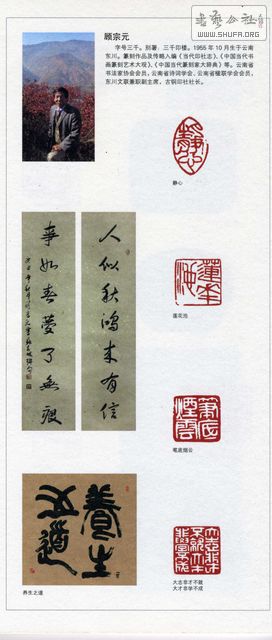 书艺公社
WWW.SHUFA.ORG
顾宗元
字号三千。别署：三千印楼。1955 年 10 月生于云南
东川。篆刻作品及传略入编《当代印社志》、《中国当代书
画篆刻艺术大观》、《中国当代篆刻家大辞典》等。云南省
书法家协会会员，云南省诗词学会、云南省楹联学会会员，
东川文联兼职副主席，古铜印社社长。
静心
人似秋鴻來有信
事如春夢了無痕
莲花池
笔底烟云
養生之道
养生之道
大志非才不就
大才非学不成